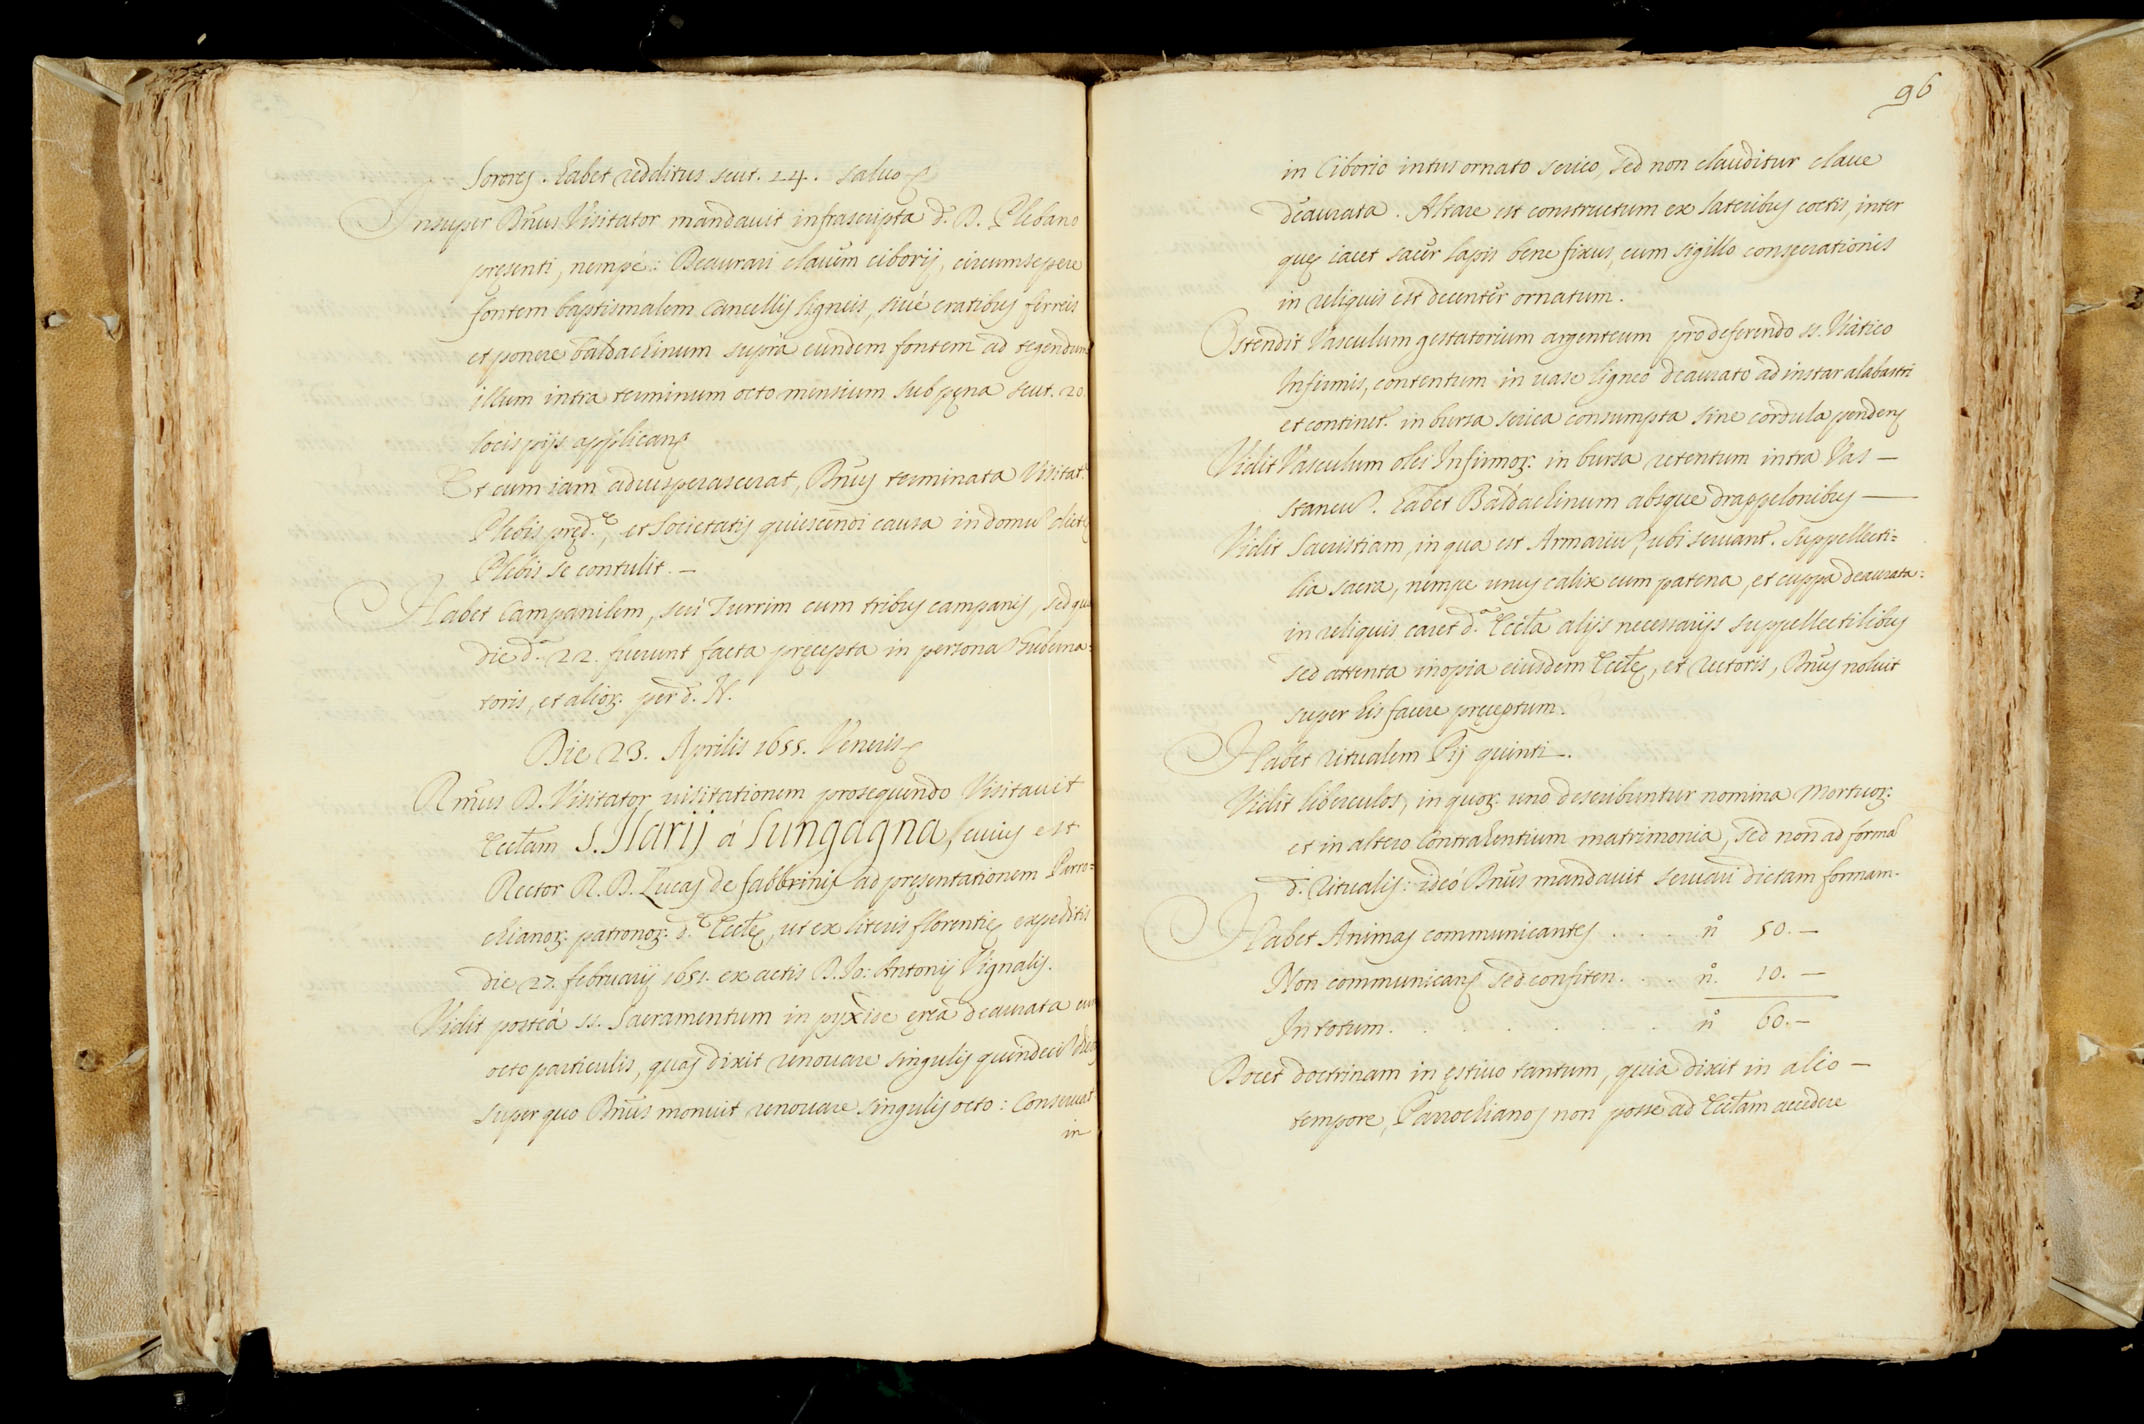 Sorores. habet redditus scut. 24. salvo
Insuper Dñus Visitator mandavit infrascripta d.º D. Plebano
presenti, nempè: Deaurari clavem ciborij, circumsepere
fontem baptismalem cancellis ligneis, sivè cratibus ferreis
et ponere baldachinum suprà eundem fontem ad tegendum
illum intra terminum octo mensium sub pęna scut. 20.
locis pijs applican
Et cum iam advesperascerat, Dñus terminata Visitat.
Plebis pręd.ę, et Societatis quiescendi causa in domu dictę
Plebis se contulit. –
Habet Campanilem, seù Turrim cum tribus campanis, sed
die d.ª 22. fuerunt facta pręcepta in persona Guberna:
toris, et alior. per d. N.
Die 23. Aprilis 1655. Veneris
Rmus D. Visitator visitationem prosequendo Visitavit
Eccłam S. Ilarij à Lungagna, cuius est
Rector R. D. Lucas de fabbrinis ad pręsentationem Parro=
chianor. patronor. d.ę Eccłę, ut ex literis florentię expeditis
die 27. februarij 1651. ex actis D. Io: Antonij Vignalis.
Vidit posteà ss. Sacramentum in pyxide ęrea deaurata
octo particulis, quas dixit renovare singulis quindeci
super quo Dñus monuit renovare singulis octo: Conservat.
in
96
in Ciborio intus ornato serico, sed non clauditur clave
deaurata. Altare est constructum ex lateribus coctis, inter
quę iacet sacer lapis bene fixus, cum sigillo consecrationis
in reliquis est decenter ornatum.
Ostendit Vasculum gestatorium argenteum pro deferendo ss. Viatico
Infirmis, contentum in vase ligneo deaurato ad instar alabastri
et continet. in bursa serica consumpta sine cordula pendens
Vidit Vasculum olei Infirmor. in bursa retentum intra Vas –
staneu. habet Baldachinum absque drappelonibus –
Vidit Sacristiam, in qua est Armariu, ubi servant. Suppellecti=
lia sacra, nempe unus calix cum patena, et cuppa deaurata:
in reliquis caret d.ª Eccła alijs necessarijs suppellectilibus
sed attenta inopia eiusdem Eccłę, et rectoris, Dñus noluit
super his facere pręceptum.
Habet ritualem Pij quinti –.
Vidit liberculos, in quor. uno describuntur nomina Mortuor.
et in altero contrahentium matrimonia, sed non ad forma
d. ritualis: ideò Dñus mandavit servari dictam formam.
Habet Animas communicantes . . . . nº 50. –
Non communican sed confiten. . . . nº. 10. –
In totum. . . . . . . . . nº 60. –
Docet doctrinam in ęstivo tantum, quia dixit in alio –
tempore, Parrochianos non posse ad Eccłam accedere